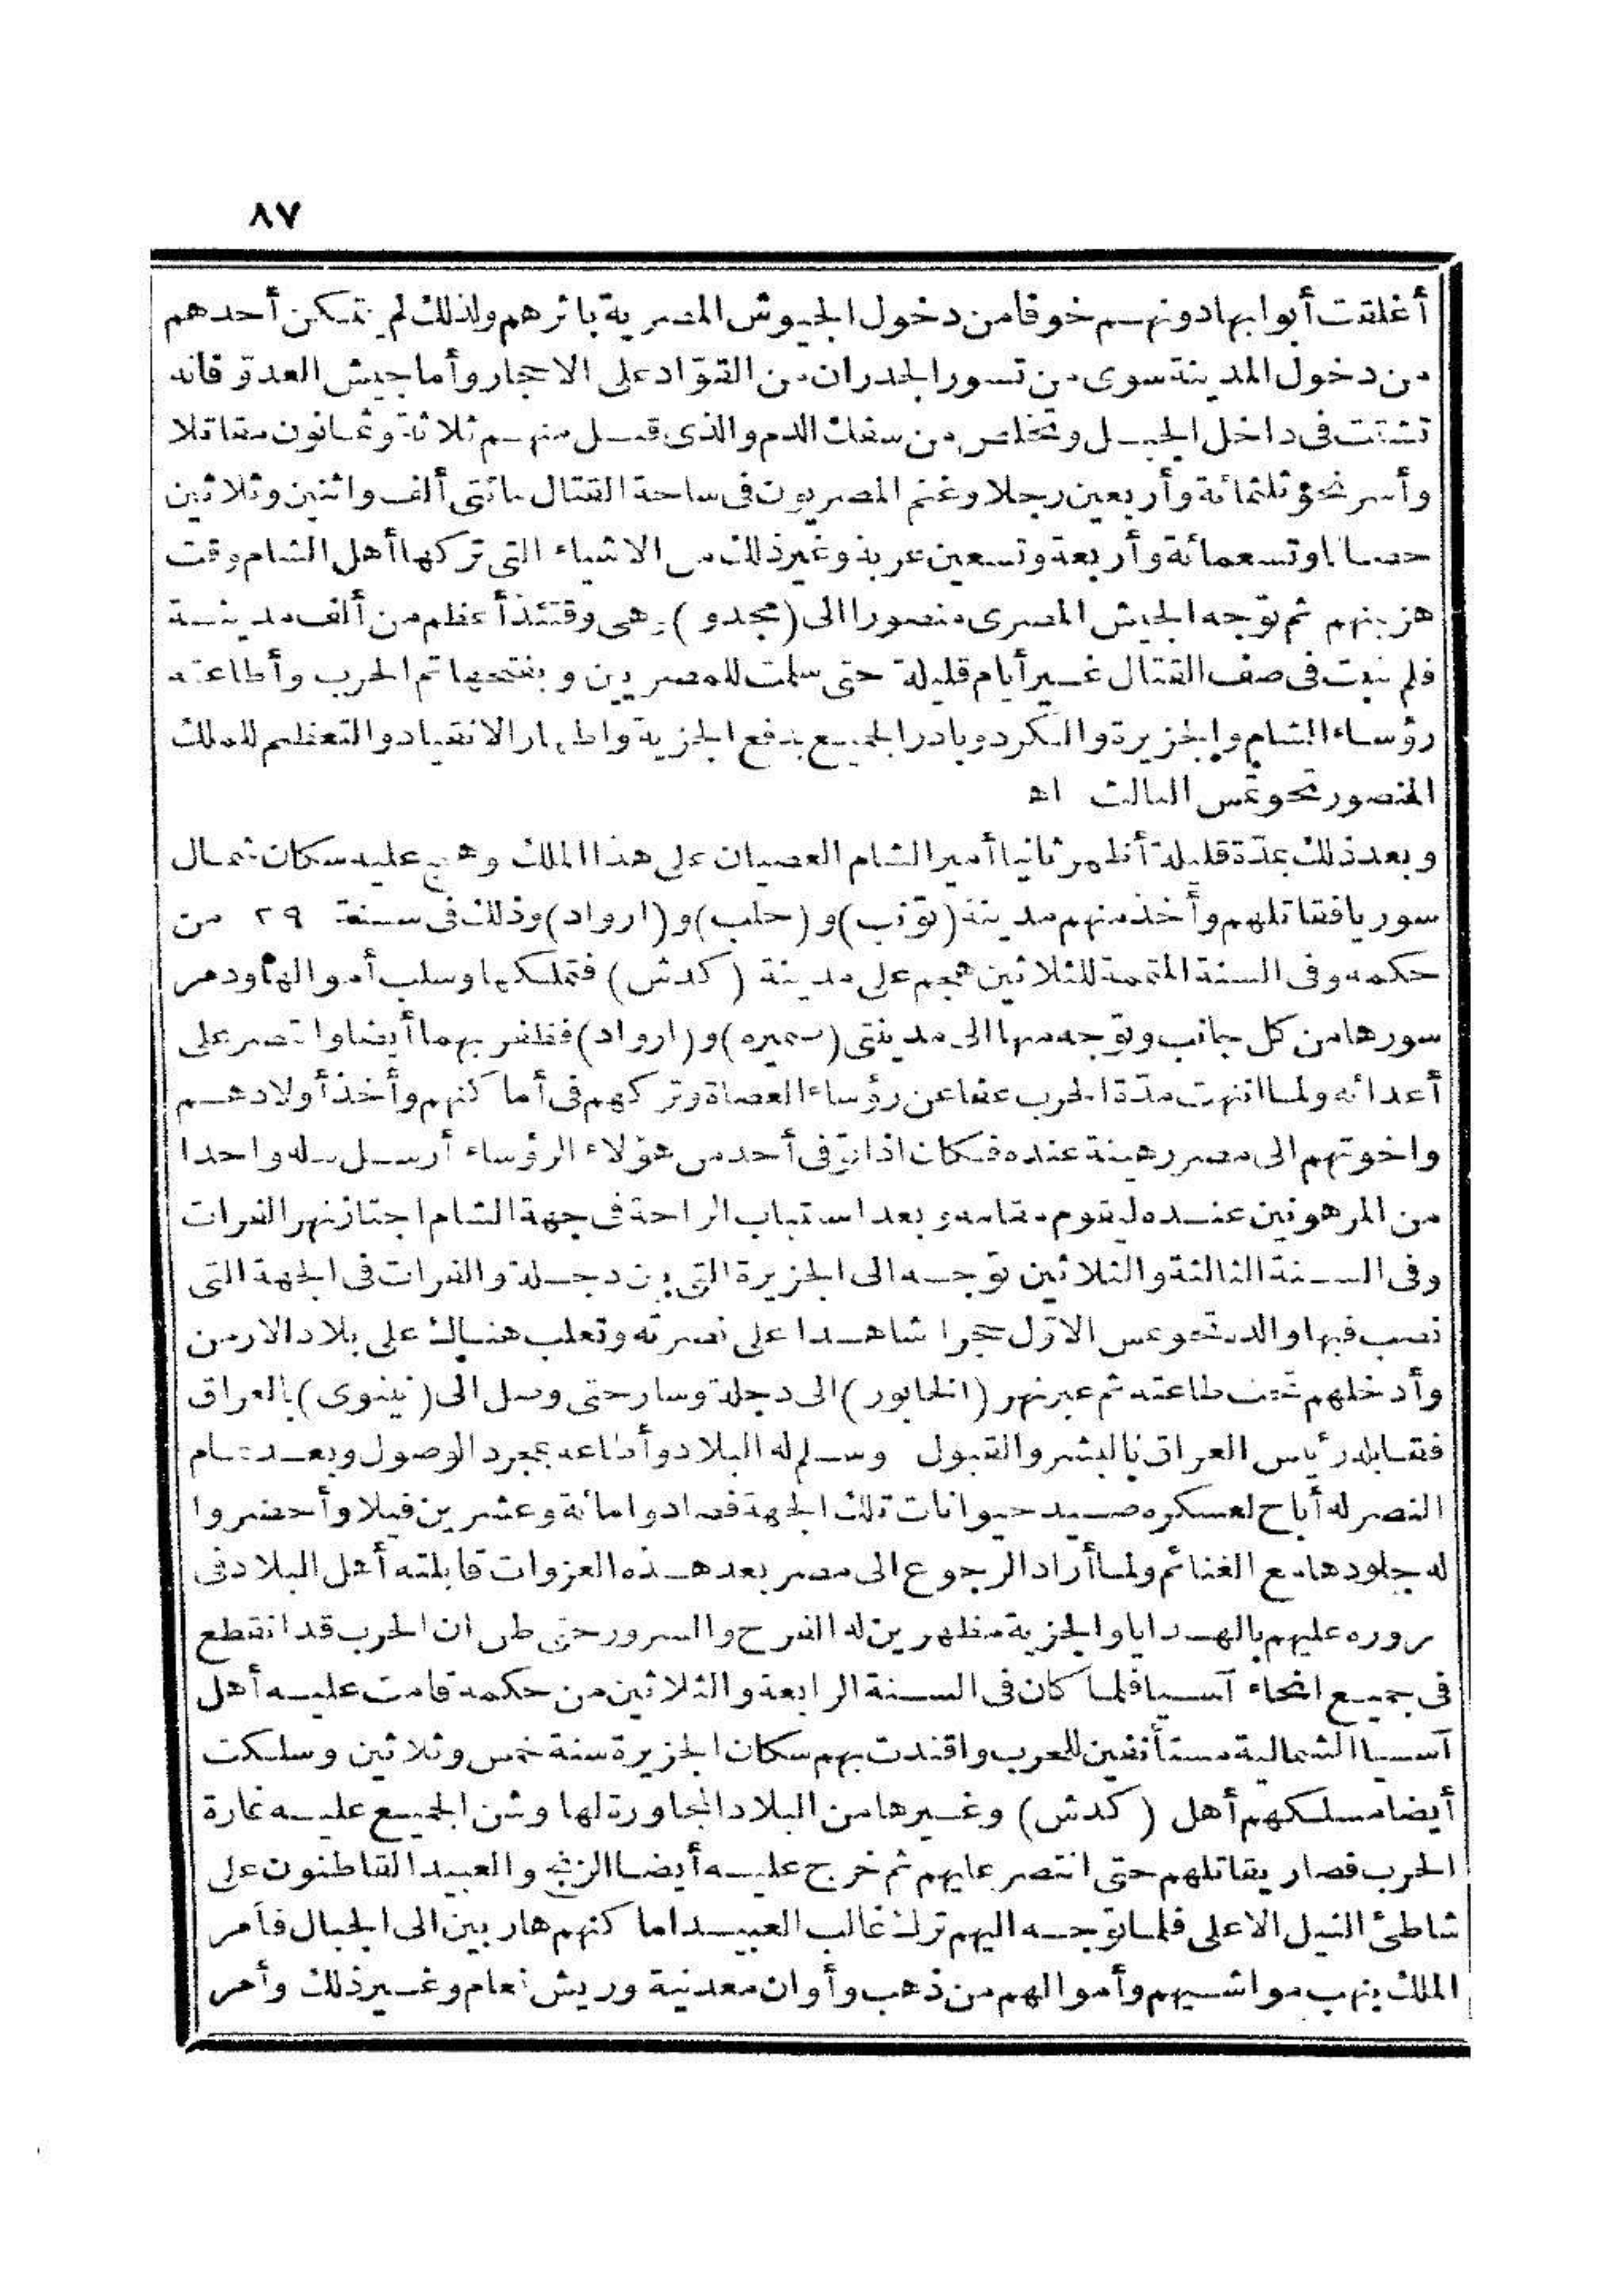 ٨٧
أغلقت أبوابها دونهم خوفا من دخول الجيوش المصرية باثرهم ولذلك لم يتمكن أحدهم
من دخول المدينة سوى من تسور الجدران من القوّاد على الاحجار وأما جيش العدوّ فانه
تشتت فى داخل الجبل وتخلص من سفك الدم والذى قتل منهم ثلاثة وثمانون مقاتلا
وأسر نحو ثلثمائة وأربعين رجلا وغنم المصريون فى ساحة القتال مائتى ألف واثنين وثلاثين
حصانا وتسعمائة وأربعة وتسعين عربة وغير ذلك من الاشياء التى تركها أهل الشام وقت
هزيمتهم ثم توجه الجيش المصرى منصورا الى (مجدو) وهى وقتئذ أعظم من ألف مدينة
فلم تثبت فى صف القتال غير أيام قليلة حتى سلمت للمصريين وبفتحها تم الحرب وأطاعته
رؤساء الشام والجزيرة والكرد وبادر الجميع بدفع الجزية واظهار الانقياد والتعظيم للملك
المنصور تحوتمس الثالث اھ
وبعد ذلك بمدّة قليلة أظهر ثانيا أمير الشام العصيان على هذا الملك وهيج عليه سكان شمال
سوريا فقاتلهم وأخذ منهم مدينة (تونب) و (حلب) و (ارواد) وذلك فى سنة ٢٩ من
حكمه وفى السنة المتممة للثلاثين هجم على مدينة (كدش) فتملكها وسلب أموالها ودمر
سورها من كل جانب وتوجه منها الى مدينتى (سميره) و (ارواد) فظفر بهما أيضا وانتصر على
أعدائه ولما انتهت مدّة الحرب عفا عن رؤساء العصاة وتركهم فى أماكنهم وأخذ أولادهم
واخوتهم الى مصر رهينة عنده فكان اذا توفى أحد من هؤلاء الرؤساء أرسل بدله واحدا
من المرهونين عنده ليقوم مقامه وبعد استتباب الراحة فى جهة الشام اجتاز نهر الفرات
وفى السنة الثالثة والثلاثين توجه الى الجزيرة التى بين دجلة والفرات فى الجهة التى
نصب فيها والده تحوتمس الاوّل حجرا شاهدا على نصرته وتغلب هناك على بلاد الارمن
وأدخلهم تحت طاعته ثم عبر نهر (الخابور) الى دجلة وسار حتى وصل الى (نينوى) بالعراق
فقابله رئيس العراق بالبشر والقبول وسلم له البلاد وأطاعه بمجرد الوصول وبعد تمام
النصر له أباح لعسكره صيد حيوانات تلك الجهة فصادوا مائة وعشرين فيلا وأحضروا
له جلودها مع الغنائم ولما أراد الرجوع الى مصر بعد هذه الغزوات قابلته أهل البلاد فى
مروره عليهم بالهدايا والجزية مظهرين له الفرح والسرور حتى ظن ان الحرب قد انقطع
فى جميع انحاء آسيا فلما كان فى السنة الرابعة والثلاثين من حكمه قامت عليه أهل
آسيا الشمالية مستأنفين للحرب واقتدت بهم سكان الجزيرة سنة خمس وثلاثين وسلكت
أيضا مسلكهم أهل (كدش) وغيرها من البلاد المجاورة لها وشن الجميع عليه غارة
الحرب فصار يقاتلهم حتى انتصر عليهم ثم خرج عليه أيضا الزنج والعبيد القاطنون على
شاطئ النيل الاعلى فلما توجه اليهم ترك غالب العبيد اماكنهم هاربين الى الجبال فأمر
الملك بنهب مواشيهم وأموالهم من ذهب وأوان معدنية وريش نعام وغير ذلك وأمر